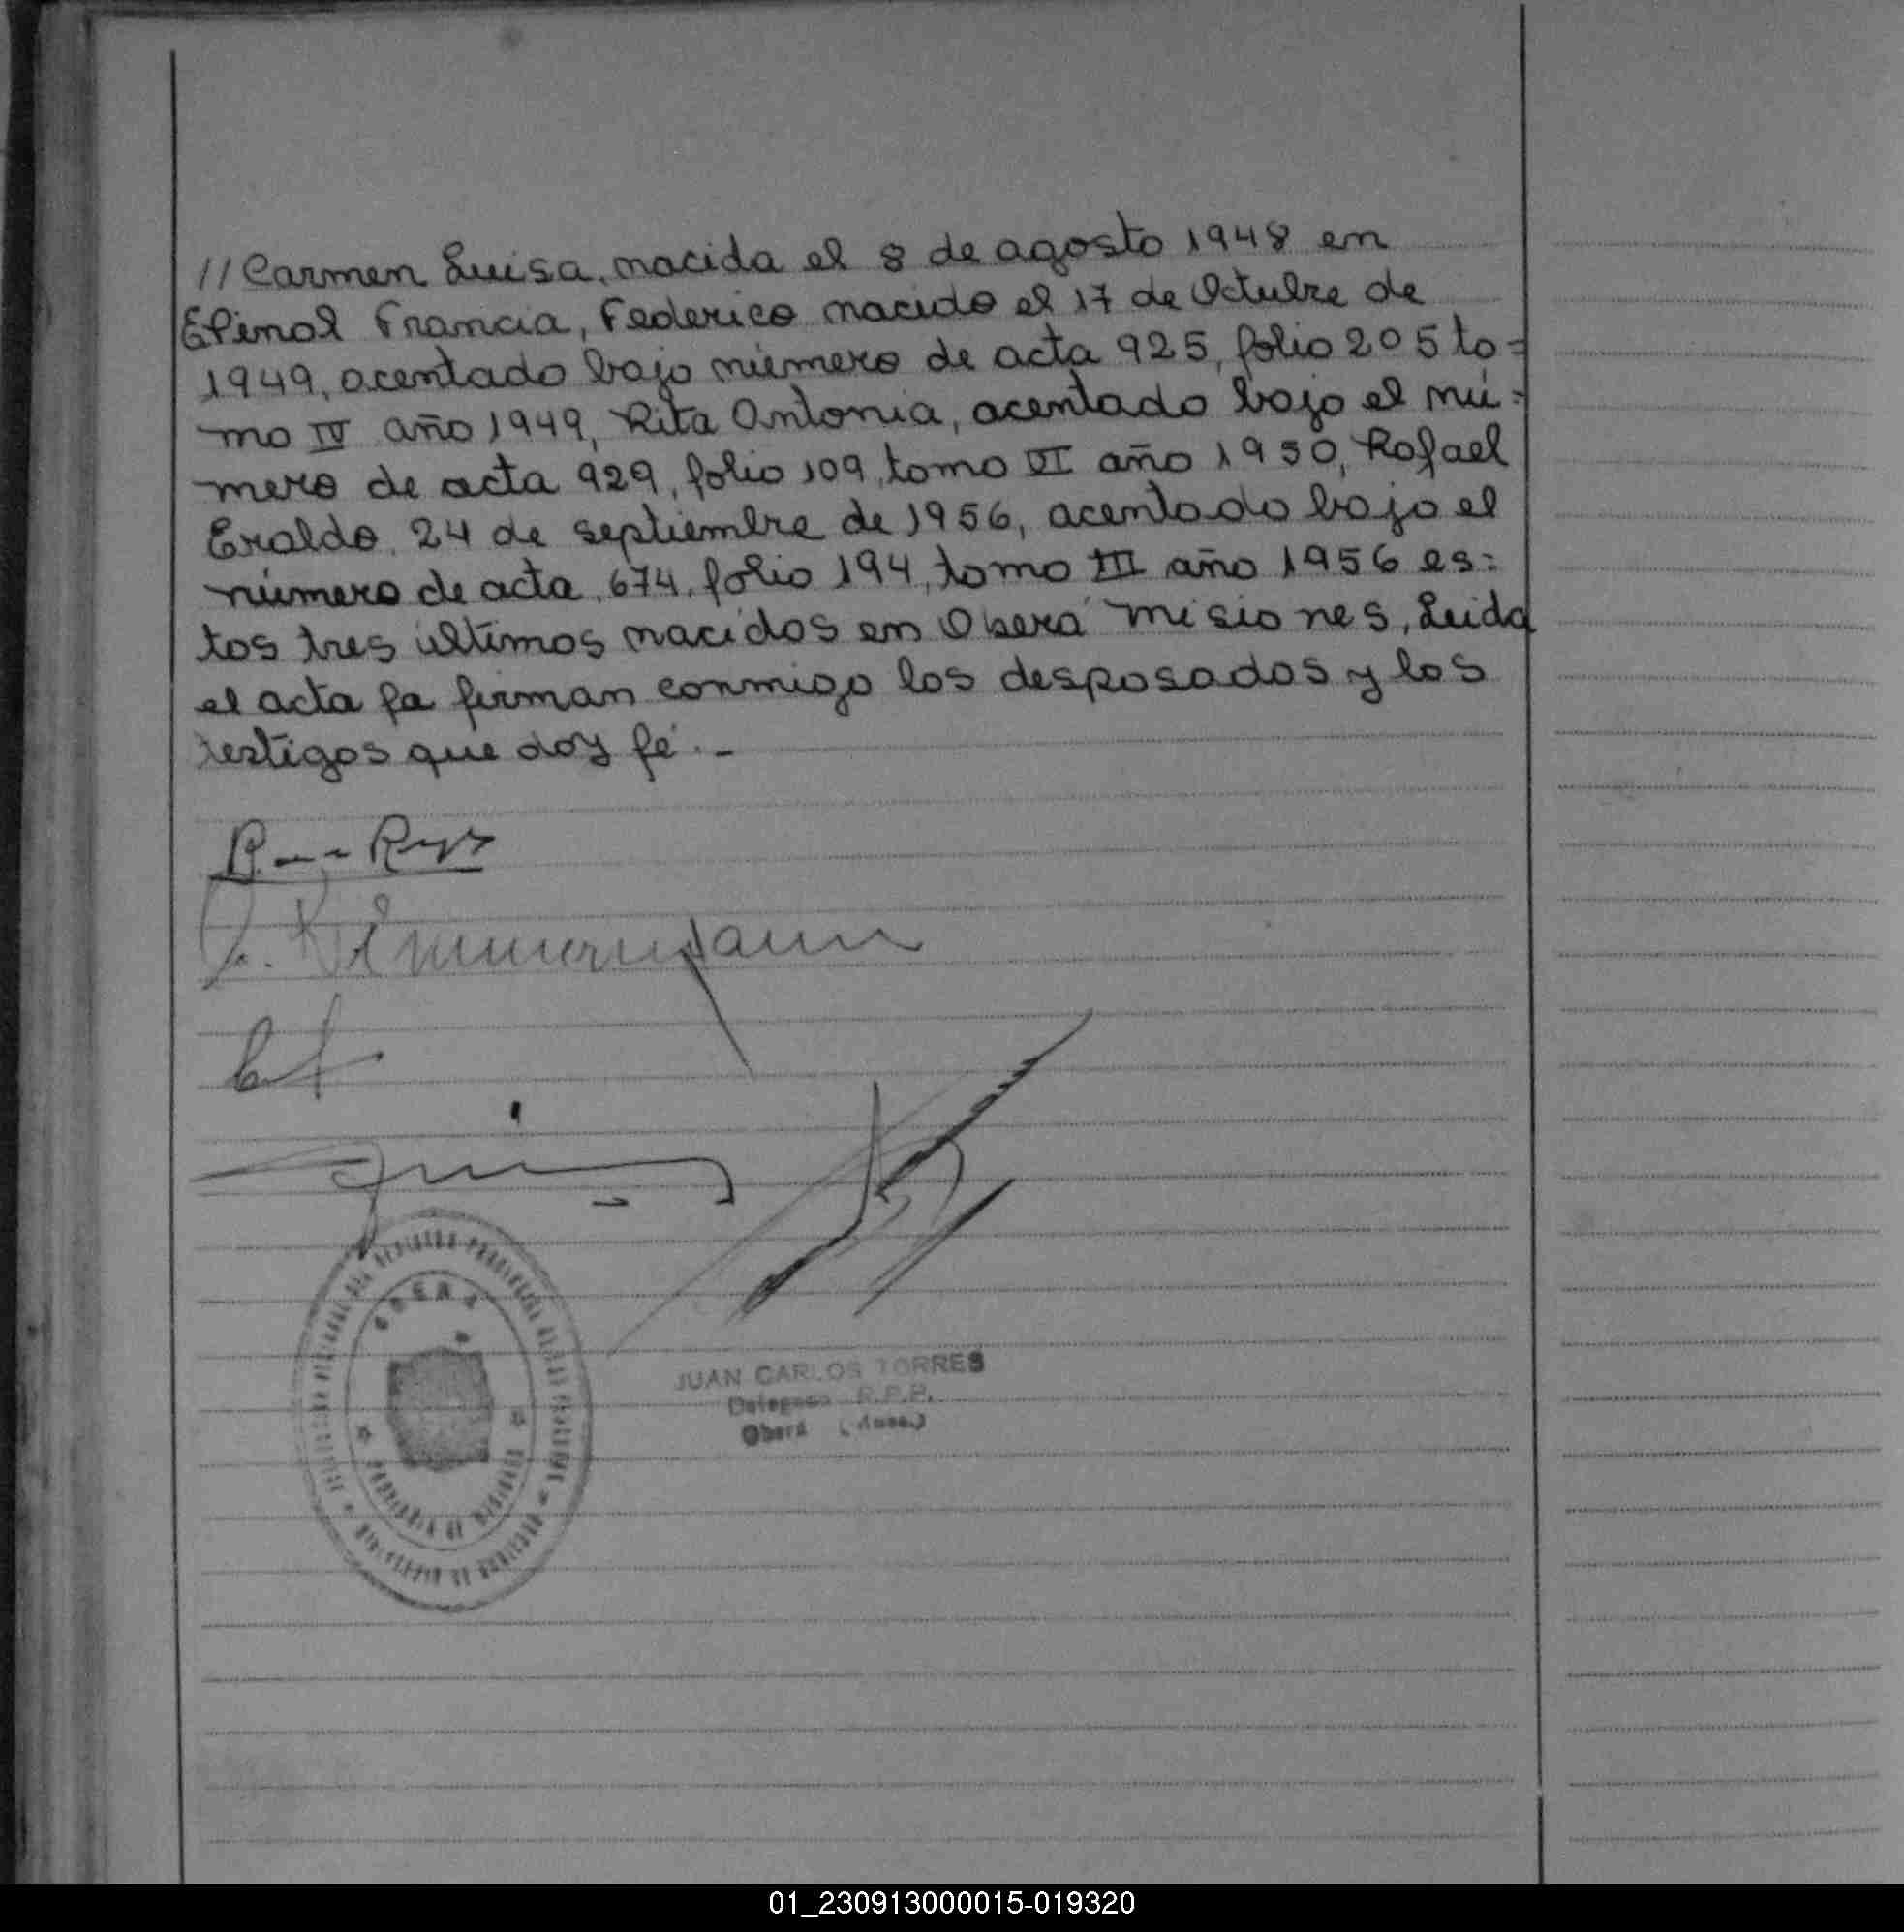 // Carmen Luisa, nacida el 8 de agosto 1948 en
Epinal Francia, Federico nacido el 17 de Octubre de
1949, acentado bajo número de acta 925, folio 205 to=
mo IV año 1949, Rita Antonia, acentado bajo el nú=
mero de acta 929, folio 109, tomo VI año 1950, Rafael
Eraldo, 24 de septiembre de 1956, acentado bajo el
número de acta, 674, folio 194, tomo III año 1956 es=
tos tres últimos nacidos en Oberá Misiones, Leida
el acta fa firman conmigo los desposados y los
testigos que doy fé.-
Zimmermann
OBERA
JUAN CARLOS TORRES
Delegado R.P.P.
Oberá (Mnes.)
01_230913000015-019320